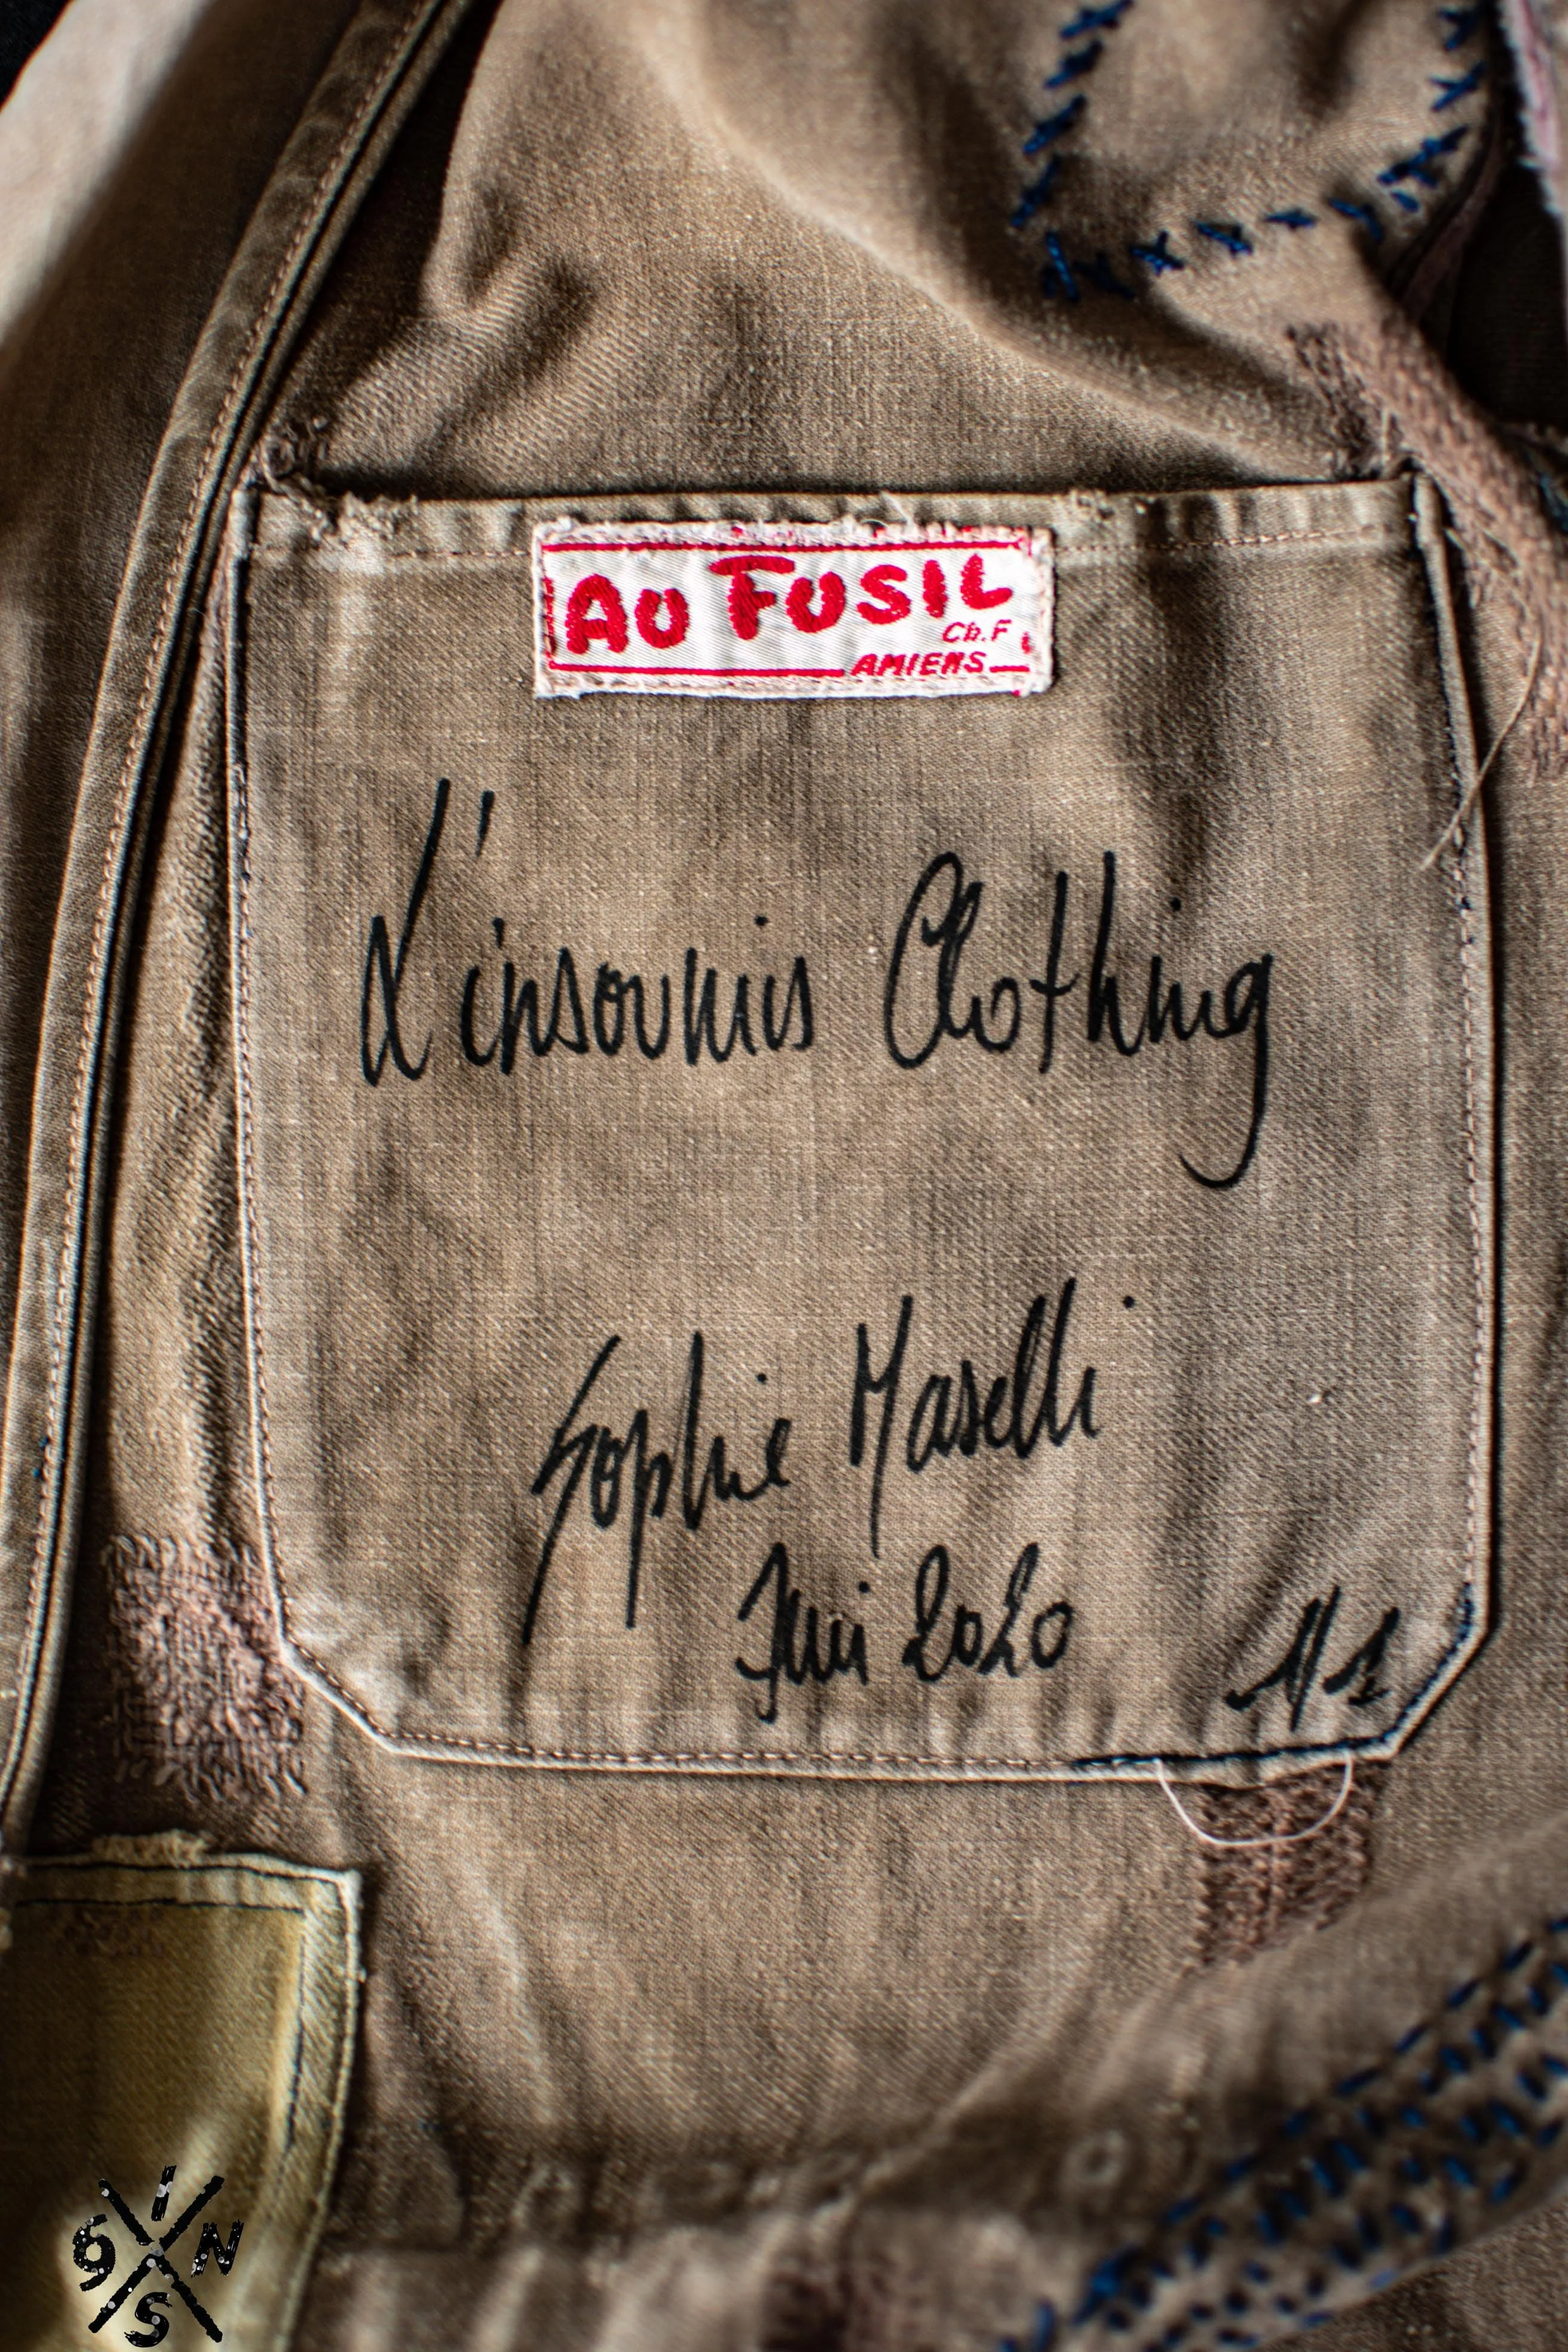 AU FUSIL
Ch.F
AMIENS
L'insoumis Clothing
Sophie Maselli
Juin 2020
N1
I
6 N
S